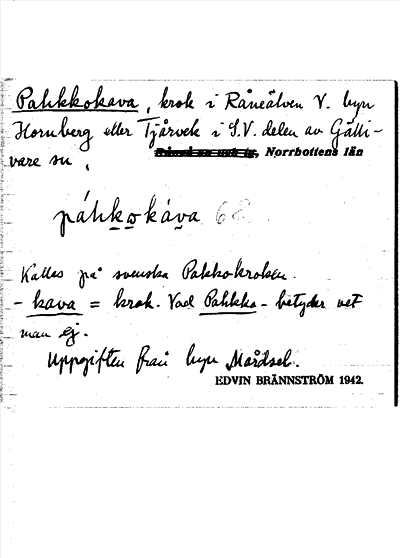 Pahkkokava, krok i Råneälven V. byn
Hornberg eller Tjårvek i S.V. delen av Gälli-
vare sn, Norrbottens län
páhkokáva 68
Kallas på svenska Pakkokroken.
- kava = krok. Vad Pahkka- betyder vet
man ej.
Uppgiften från byn Mårdsel.
EDVIN BRÄNNSTRÖM 1942.